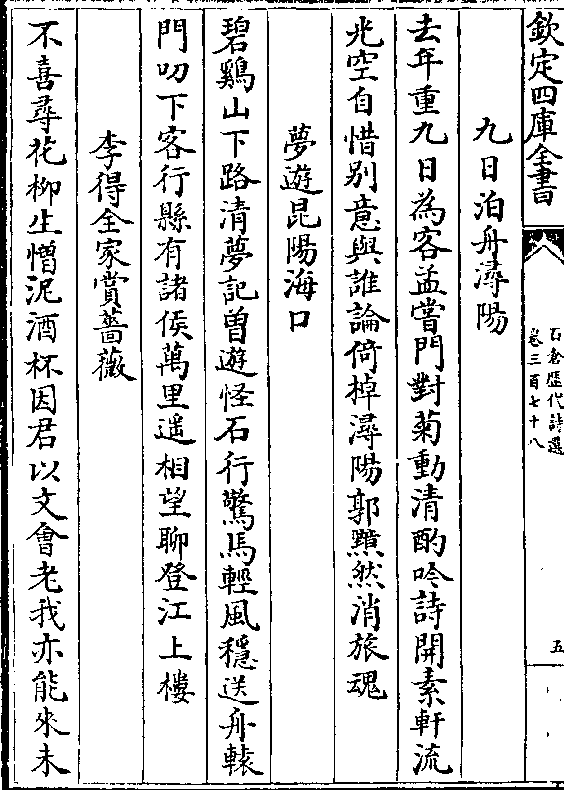 欽定四庫全書
石倉歴代詩選
卷三百七十八
五
九日泊舟潯陽
去年重九日為客孟嘗門對菊動清酌吟詩開素軒流
光空自惜别意與誰論倚棹潯陽郭黯然消旅魂
夢遊昆陽海口
碧鷄山下路清夢記曽遊怪石行驚馬輕風穩送舟轅
門叨下客行縣有諸侯萬里遥相望聊登江上樓
李得全家賞薔薇
不喜尋花柳生憎泥酒杯因君以文會老我亦能來未